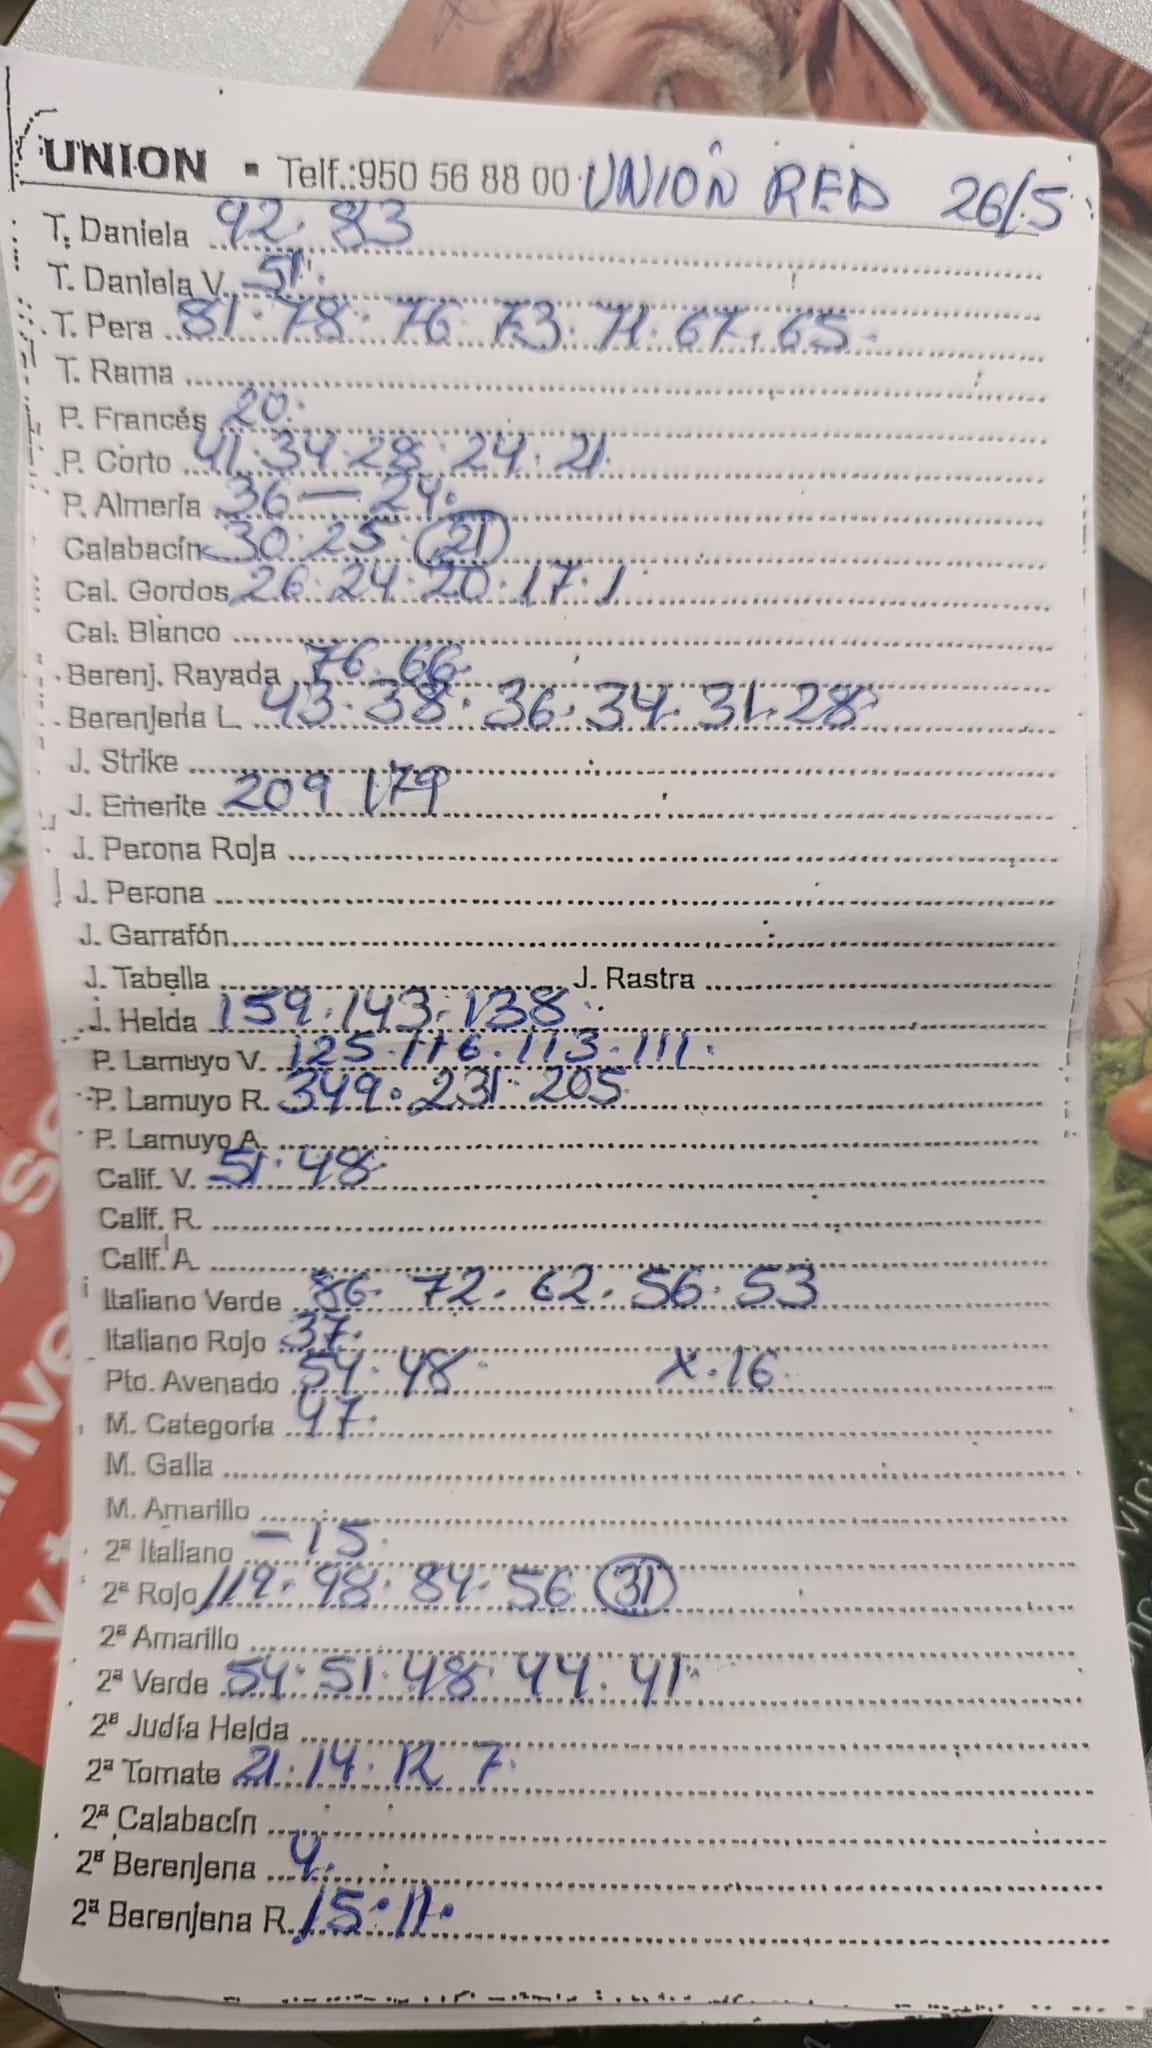 UNION ▪ Telf.:950 56 88 00 UNION RED 26/5
T. Daniela 92. 83
T. Daniela V. 51.
T. Pera 81. 78. 76. 73. 71. 67. 65.
T. Rama
P. Francés 20.
P. Corto 41. 34. 28. 24. 21.
P. Almería 36 — 24.
Calabacín 30. 25. 21
Cal. Gordos 26. 24. 20. 17. 1
Cal. Blanco
Berenj. Rayada 76. 66.
Berenjena L. 43. 38. 36. 34. 31. 28.
J. Strike
J. Emerite 209 179
J. Perona Roja
J. Perona
J. Garrafón
J. Tabella J. Rastra
J. Helda 159. 143. 138.
P. Lamuyo V. 125. 116. 113. 111.
P. Lamuyo R. 349. 231. 205
P. Lamuyo A.
Calif. V. 51. 48.
Calif. R.
Calif. A.
Italiano Verde 86. 72. 62. 56. 53
Italiano Rojo 37.
Pto. Avenado 54. 48. X. 16.
M. Categoría 47.
M. Galia
M. Amarillo
2ª Italiano — 15.
2ª Rojo 119. 98. 84. 56 31
2ª Amarillo
2ª Verde 54. 51. 48. 44. 41.
2ª Judía Helda
2ª Tomate 21. 14. 12 7.
2ª Calabacín
2ª Berenjena 4.
2ª Berenjena R. 15. 11.